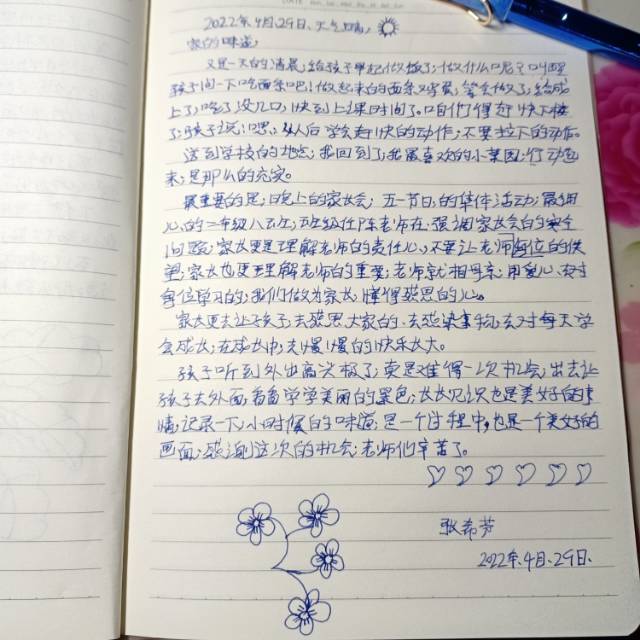 2022年4月29日、天气晴,
家的味道,
又是一天的清晨,给孩子早起做饭了,做什么呢?叫醒
孩子问一下吃面条吧,做起来的面条
上了,吃了没几口,快到上课时间了。咱们得赶快下楼
了,孩子说,嗯,从后学会赶快的动作,不要拉下的动作。
送到学校的地点,我回到了我最喜欢的小菜园,行动起
来,是那么的充实。
最重要的是,晚上的家长会,五一节日,的集体活动,最用
心,的二年级八五班,班级任陈老师在强调家长会的安全
问题,家长更是理解老师的责任心,不要让老师每位的失
望,家长也更理解老师的重要,老师就相母亲,用爱心,来对
每位学习的,我们做为家长,懂得感恩的心。
家长更去让孩子,去感恩大家的,去感染事物,去对每天学
会成长,在成长中,去慢慢的快乐长大。
孩子听到外出高兴极了,更是难得一次机会,出去让
孩子去外面,看看学学美丽的景色,长长见识也是美好的事
情,记录一下,小时候的味道,是一个过程中,也是一个美好的
画面,感谢这次的机会,老师们辛苦了。
张希芳
2022年、4月、29日、